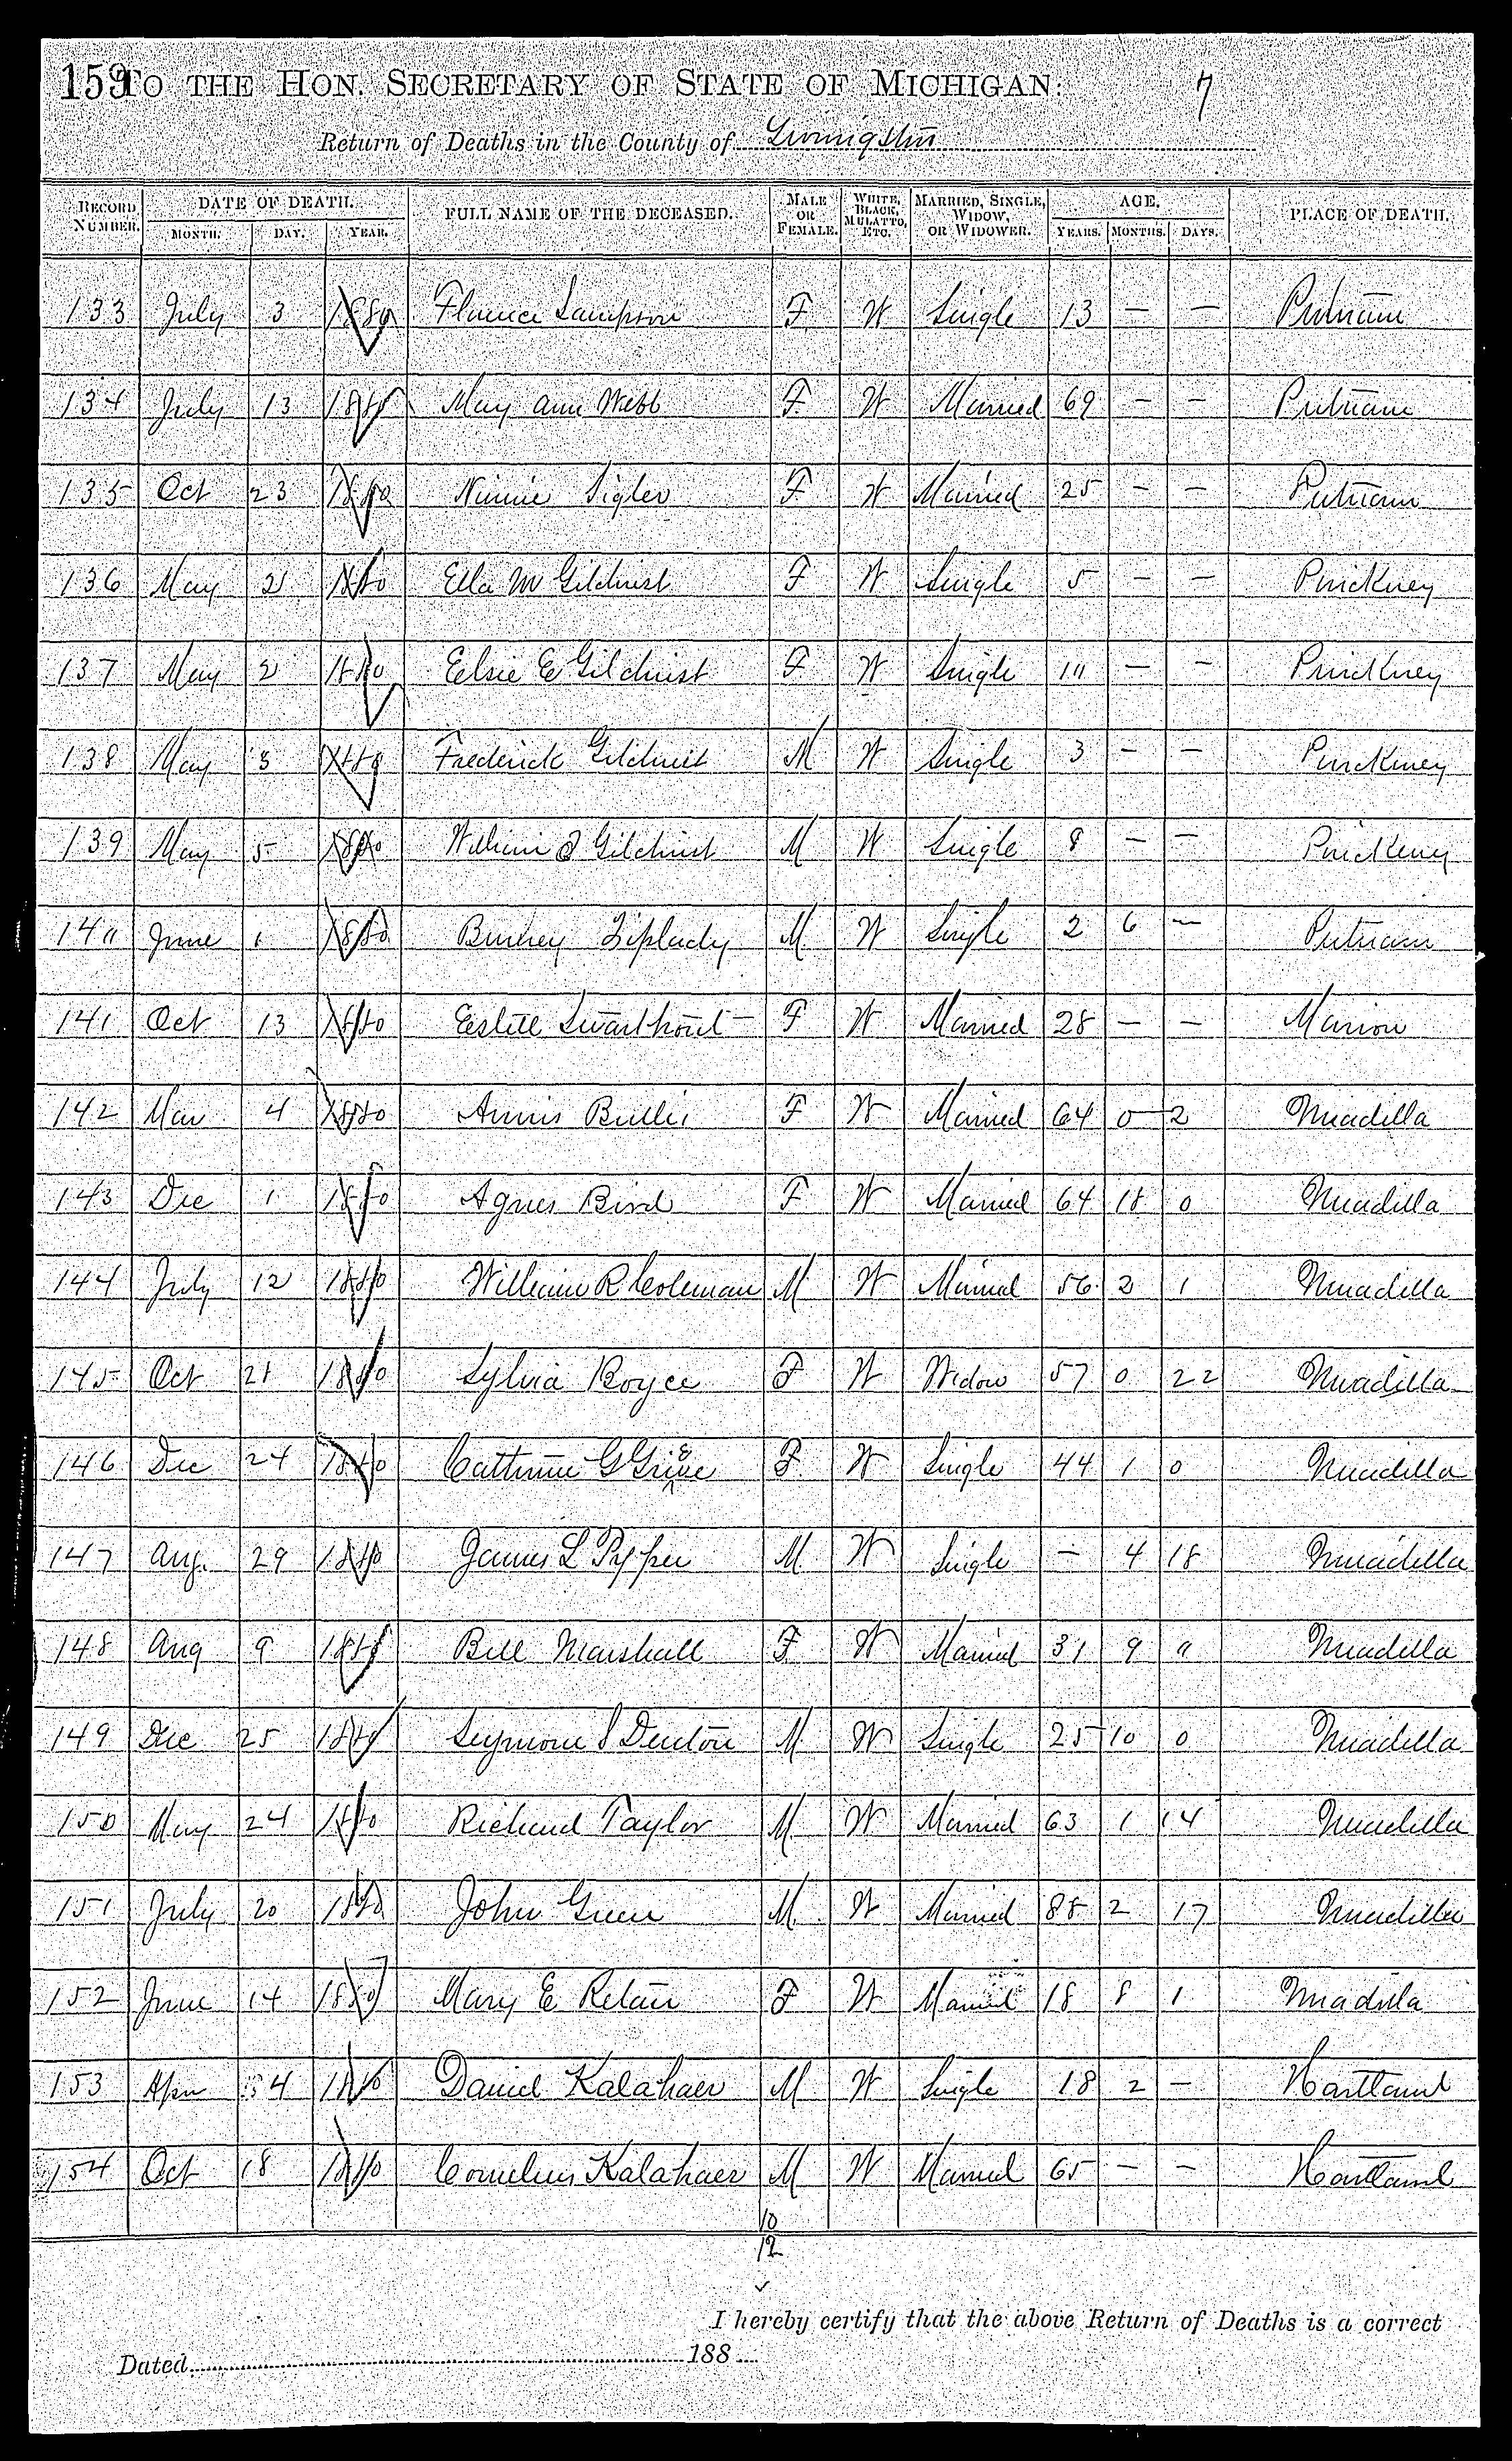 159 TO THE HON. SECRETARY OF STATE OF MICHIGAN: 7
Return of Deaths in the County of Livingston
RECORD NUMBER. DATE OF DEATH. MONTH. DAY. YEAR. FULL NAME OF THE DECEASED. MALE OR FEMALE. WHITE, BLACK, MULATTO, ETC. MARRIED, SINGLE, WIDOW, OR WIDOWER. AGE. YEARS. MONTHS. DAYS. PLACE OF DEATH.
133 July 3 1880 Florence Sampson F W Single 13 — — Putnam
134 July 13 1880 Mary Ann Webb F W Married 69 — — Putnam
135 Oct 23 1880 Sigler F W Married 25 — — Putnam
136 May 1880 Ella M Gilchrist F W Single 5 — — Pinckney
137 May 2 1880 Elsie E Gilchrist F W Single 10 — — Pinckney
138 May 3 1880 Frederick Gilchrist M W Single 3 — — Pinckney
139 May 5 1880 William Gilchrist M W Single 8 — — Pinckney
140 June 1 1880 Burney Tiplady M W Single 2 6 — Putnam
141 Oct 13 1880 Estell Swarthout F W Married 28 — — Marion
142 Mar 4 1880 Annis Bullis F W Married 64 0 2 Unadilla
143 Dec 1 1880 Agnes Bird F W Married 64 18 0 Unadilla
144 July 12 1880 William R Coleman M W Married 56 2 1 Unadilla
145 Oct 21 1880 Sylvia Boyce F W Widow 57 0 22 Unadilla
146 Dec 24 1880 Catherine G F W Single 44 1 0 Unadilla
147 Aug. 29 1880 James L Pypper M W Single — 4 18 Unadilla
148 Aug 9 1880 Bell Marshall F W Married 31 9 0 Unadilla
149 Dec 25 1880 Seymour S Denton M W Single 25 10 0 Unadilla
150 May 24 1880 Richard Taylor M W Married 63 1 14 Unadilla
151 July 20 1880 John Green M W Married 88 2 17 Unadilla
152 June 14 1880 Mary E F W Married 18 8 1 Unadilla
153 Apr 1880 Daniel Kalahaer M W Single 18 2 — Hartland
154 Oct 18 1880 Cornelius Kalahaer M W Married 65 — — Hartland
10
12
I hereby certify that the above Return of Deaths is a correct
Dated 188